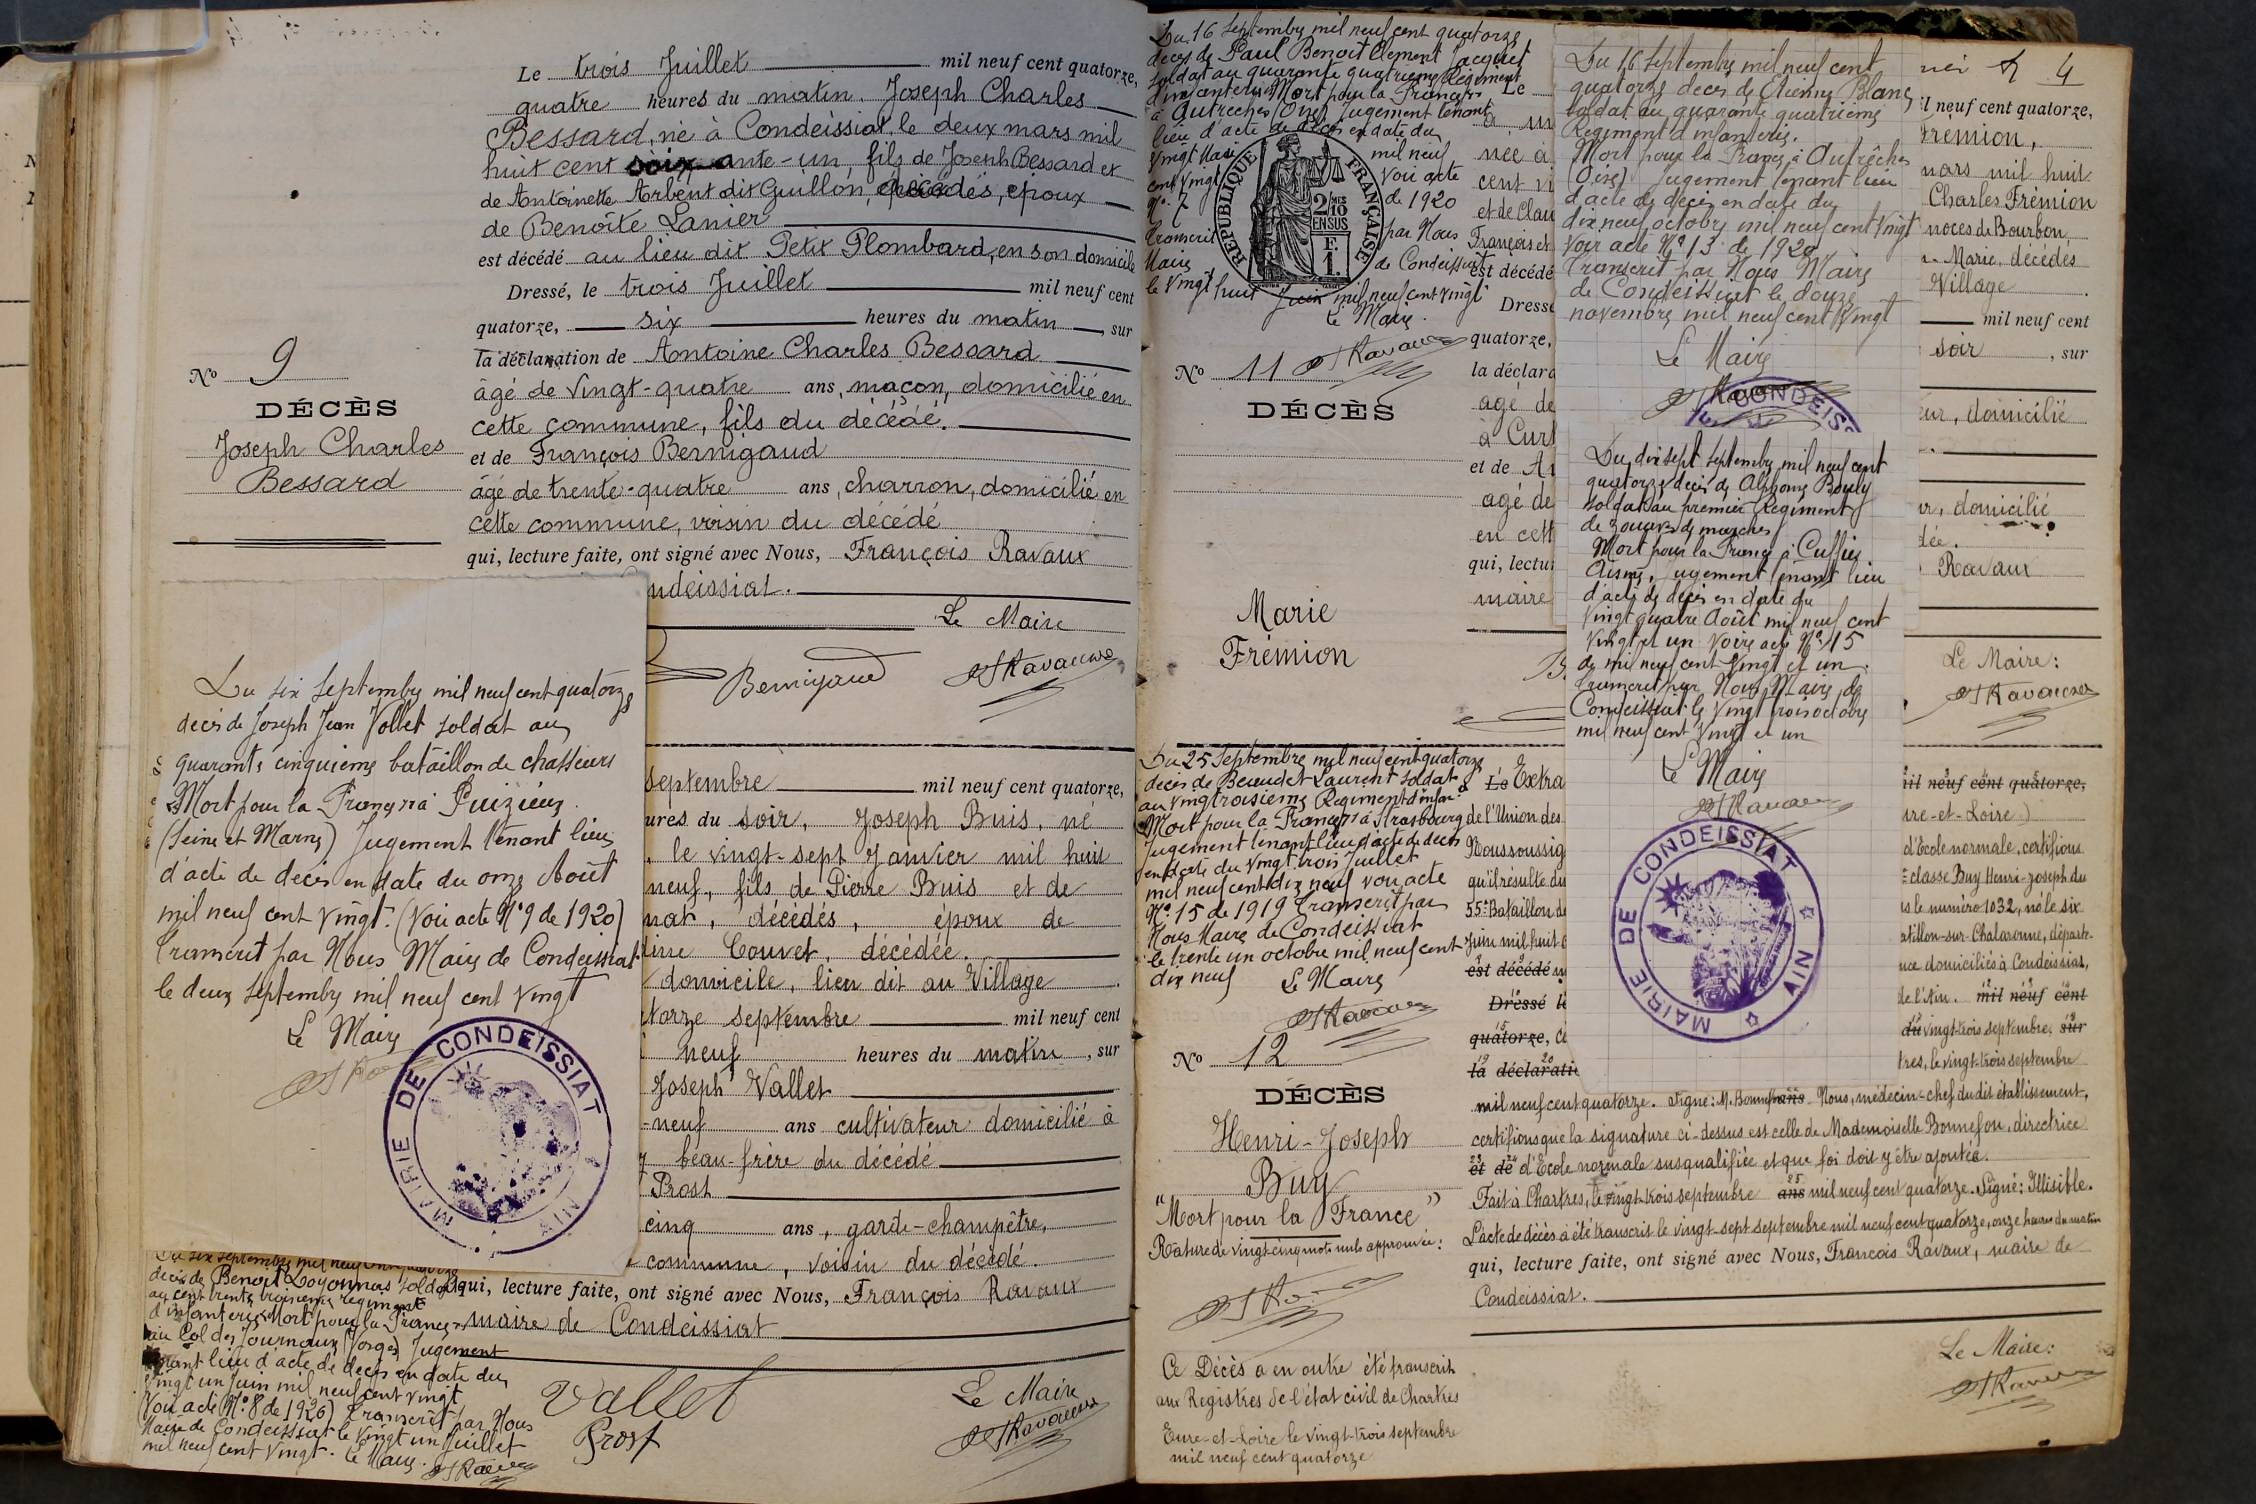 Le trois Juillet mil neuf cent quatorze,
quatre heures du matin. Joseph Charles
Bessard, né à Condeissiat, le deux mars mil
huit cent soixante-un, fils de Joseph Bessard et
de Antoinette Arbent dit Guillon, décédés, époux
de Benoîte Lanier
est décédé au lieu dit Petit Plombard, en son domicile
Dressé, le trois Juillet mil neuf cent
quatorze, six heures du matin, sur
la déclaration de Antoine Charles Bessard
âgé de vingt-quatre ans, maçon, domicilié en
cette commune, fils du décédé.
et de François Bernigaud
âgé de trente-quatre ans, charron, domicilié en
cette commune, voisin du décédé
qui, lecture faite, ont signé avec Nous, François Ravaux
ndeissiat.
Le Maire
Bernigaud
Ravaux
No 9
DÉCÈS
Joseph Charles
Bessard
Du six septembre mil neuf cent quatorze
décès de Joseph Jean Vollet soldat au
quarante cinquième bataillon de chasseurs
Mort pour la France à Puizieux
(Seine et Marne) Jugement tenant lieu
d'acte de décès en date du onze Août
mil neuf cent vingt. (Voir acte N° 9 de 1920)
Transcrit par Nous Maire de Condeissiat
le deux septembre mil neuf cent vingt
Le Maire
MAIRIE DE CONDEISSIAT
AIN
septembre mil neuf cent quatorze,
ures du soir, Joseph Buis, né
, le vingt-sept Janvier mil huit
neuf, fils de Pierre Buis et de
nat, décédés, époux de
line Couvet, décédée.
domicile, lieu dit au Village
torze septembre mil neuf cent
neuf heures du matin, sur
Joseph Vallet
-neuf ans cultivateur domicilié à
beau-frère du décédé
Prost
cinq ans, garde-champêtre,
commune, voisin du décédé.
qui, lecture faite, ont signé avec Nous, François Ravaux
maire de Condeissiat
Vallet
Prost
Le Maire
Ravaux
Du six septembre mil neuf cent quatorze
décès de Benoit Loyonnas soldat
au cent trente troisième régiment
d'infanterie Mort pour la France
au Col des Journaux (Vosges) Jugement
tenant lieu d'acte de décès en date du
vingt un Juin mil neuf cent vingt
(Voir acte N° 8 de 1920) Transcrit par Nous
Maire de Condeissiat le vingt un Juillet
mil neuf cent vingt. Le Maire.
Du 16 Septembre mil neuf cent quatorze
décès de Paul Benoit Clement Jacquet
soldat au quarante quatrième Régiment
d'infanterie Mort pour la France
à Autreches (Oise) Jugement tenant
lieu d'acte de décès en date du
vingt Mai mil neuf
cent vingt Voir acte
N° 7 de 1920
Transcrit par Nous
Maire de Condeissiat
le vingt huit Juin mil neuf cent vingt
Le Maire.
Ravaux
RÉPUBLIQUE FRANÇAISE
2 MES
10
EN SUS
F.
1.
No 11
DÉCÈS
Marie
Frémion
Le
née à
cent vi
et de Clau
François et
est décédé
Dressé
quatorze,
la déclara
âgé de
à Curt
et de
âgé de
en cett
qui, lectur
maire
Du 16 Septembre mil neuf cent
quatorze décès de Etienne Blanc
soldat au quarante quatrième
Régiment d'infanterie.
Mort pour la France à Autrêches
(Oise) Jugement tenant lieu
d'acte de décès en date du
dix neuf octobre mil neuf cent vingt
Voir acte N° 13 de 1920
Transcrit par Nous Maire
de Condeissiat le douze
novembre mil neuf cent vingt
Le Maire
CONDEIS
Du dix sept Septembre mil neuf cent
quatorze décès de Alphonse Bouly
soldat au premier Régiment
de zouaves de marche
Mort pour la France à Cuffies
Aisne, Jugement tenant lieu
d'acte de décès en date du
vingt quatre Août mil neuf cent
vingt et un Voir acte N° 15
de mil neuf cent vingt et un.
Transcrit par Nous Maire de
Condeissiat le vingt trois octobre
mil neuf cent vingt et un
Le Maire
Ravaux
MAIRIE DE CONDEISSIAT
AIN
4
l neuf cent quatorze,
Frémion,
mars mil huit
Charles Frémion
noces de Bourbon
Marie, décédés
Village
mil neuf cent
soir, sur
eur, domicilié
ur, domicilié
dée.
Ravaux
Le Maire:
Ravaux
Du 25 Septembre mil neuf cent quatorze
décès de Beraudet Laurent soldat
au vingt troisième Régiment d'infan
Mort pour la France à Strasbourg
Jugement tenant lieu d'acte de décès
en date du vingt trois Juillet
mil neuf cent dix neuf voir acte
N° 15 de 1919 Transcrit par
Nous Maire de Condeissiat
le trente un octobre mil neuf cent
dix neuf Le Maire
Ravaux
No 12
DÉCÈS
Henri-Joseph
Buy
"Mort pour la France"
Rature de vingt-cinq mots nuls approuvée:
Ce Décès a en outre été transcrit
aux Registres de l'état civil de Chartres
Eure-et-Loire le vingt-trois septembre
mil neuf cent quatorze
Le Extra
de l'Union des
Nous soussig
qu'il résulte du
55e Bataillon de
Juin mil huit
est décédé
Dressé le
quatorze,
la déclarati
mil neuf cent quatorze,
ure-et-Loire)
d'Ecole normale, certifions
classe Buy Henri-Joseph du
le numéro 1032, né le six
atillon-sur-Chalaronne, départe-
nce domiciliés à Condeissiat,
de l'Ain. mil neuf cent
du vingt-trois septembre sur
tres, le vingt-trois septembre
mil neuf cent quatorze. Signé: M. Bonnefon ans Nous, médecin-chef du dit établissement,
certifions que la signature ci-dessus est celle de Mademoiselle Bonnefon, directrice
et de d'Ecole normale susqualifiée et que foi doit y être ajoutée.
Fait à Chartres, le vingt-trois septembre ans mil neuf cent quatorze. Signé: Illisible.
L'acte de décès a été transcrit le vingt-sept septembre mil neuf cent quatorze, onze heures du matin
qui, lecture faite, ont signé avec Nous, François Ravaux, maire de
Condeissiat.
Le Maire:
Ravaux